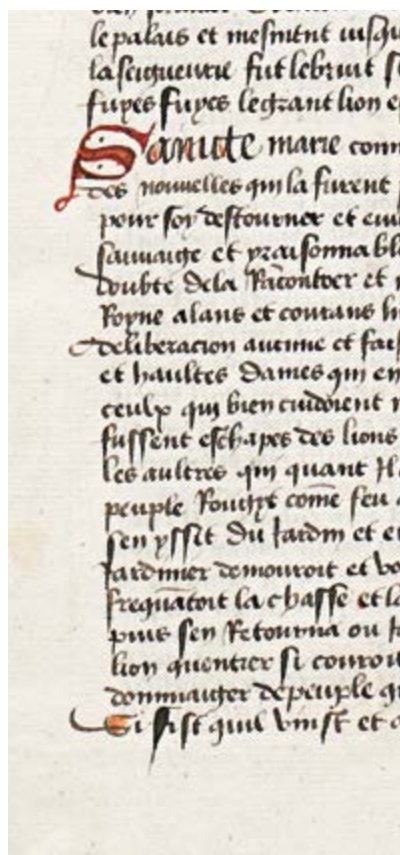 le palais et mesment iusqu
la seigneurie fut le bruit
fuyes fuyes le grant lion e
Saincte marie com
des nouuelles qui la furent
pour soy destourner et eui
sauuaige et yraisonnable
doubte de la Racontrer et
Royne alans et courans
deliberacion aucune et fai
et haultes dames qui en
ceulx qui bien cuidoient
fussent eschapes des lions
les aultres qui quant Il
peuple Rouuyt come feu
sen yssit du Jardin et e
Jardinier demouroit et vo
frequatoit la chasse et la
puis sen Retourna ou
lion quentier si couroit
dommaiger de peuple
Si fist quil vinst et